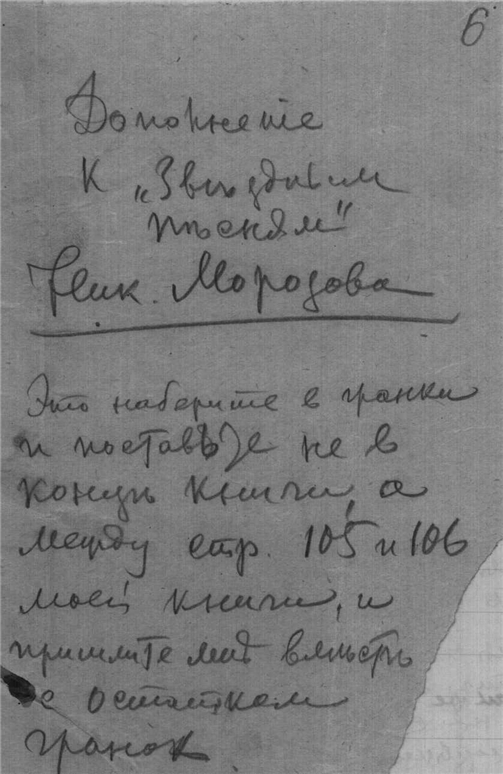 6
Дополнение
к „Звѣздным
пѣсням"
Ник. Морозова
Это наберите в гранки
и поставьте не в
концѣ книги, а
между стр. 105 и 106
моей книги, и
пришлите мнѣ вмѣстѣ
с остатком
гранок